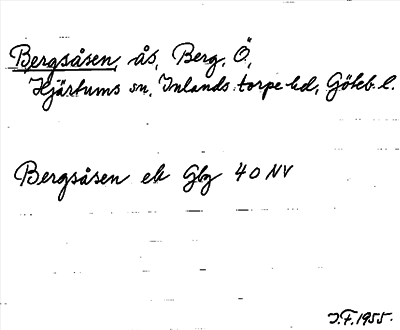 Bergsåsen, ås, Berg, Ö,
Hjärtums sn, Inlands torpe hd, Göteb. l.
Bergsåsen ek Gbg 40 NV
J.F. 1955.